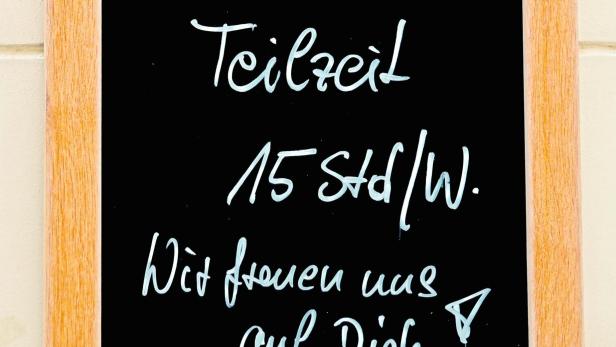 Teilzeit
15 Std/W.
Wir freuen uns
auf Dich